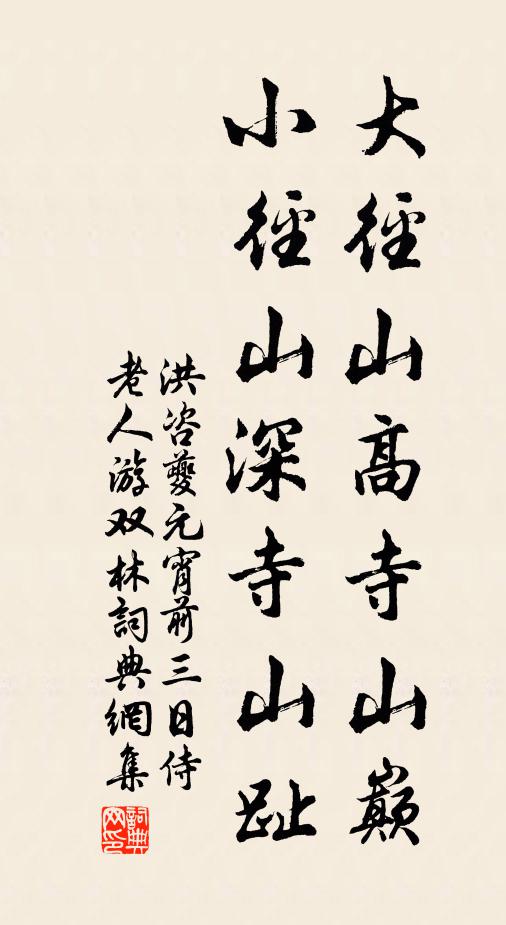 大徑山高寺山巔
小徑山深寺山趾
洪咨夔元宵前三日侍
老人游双林詞典網集
詞典
网印